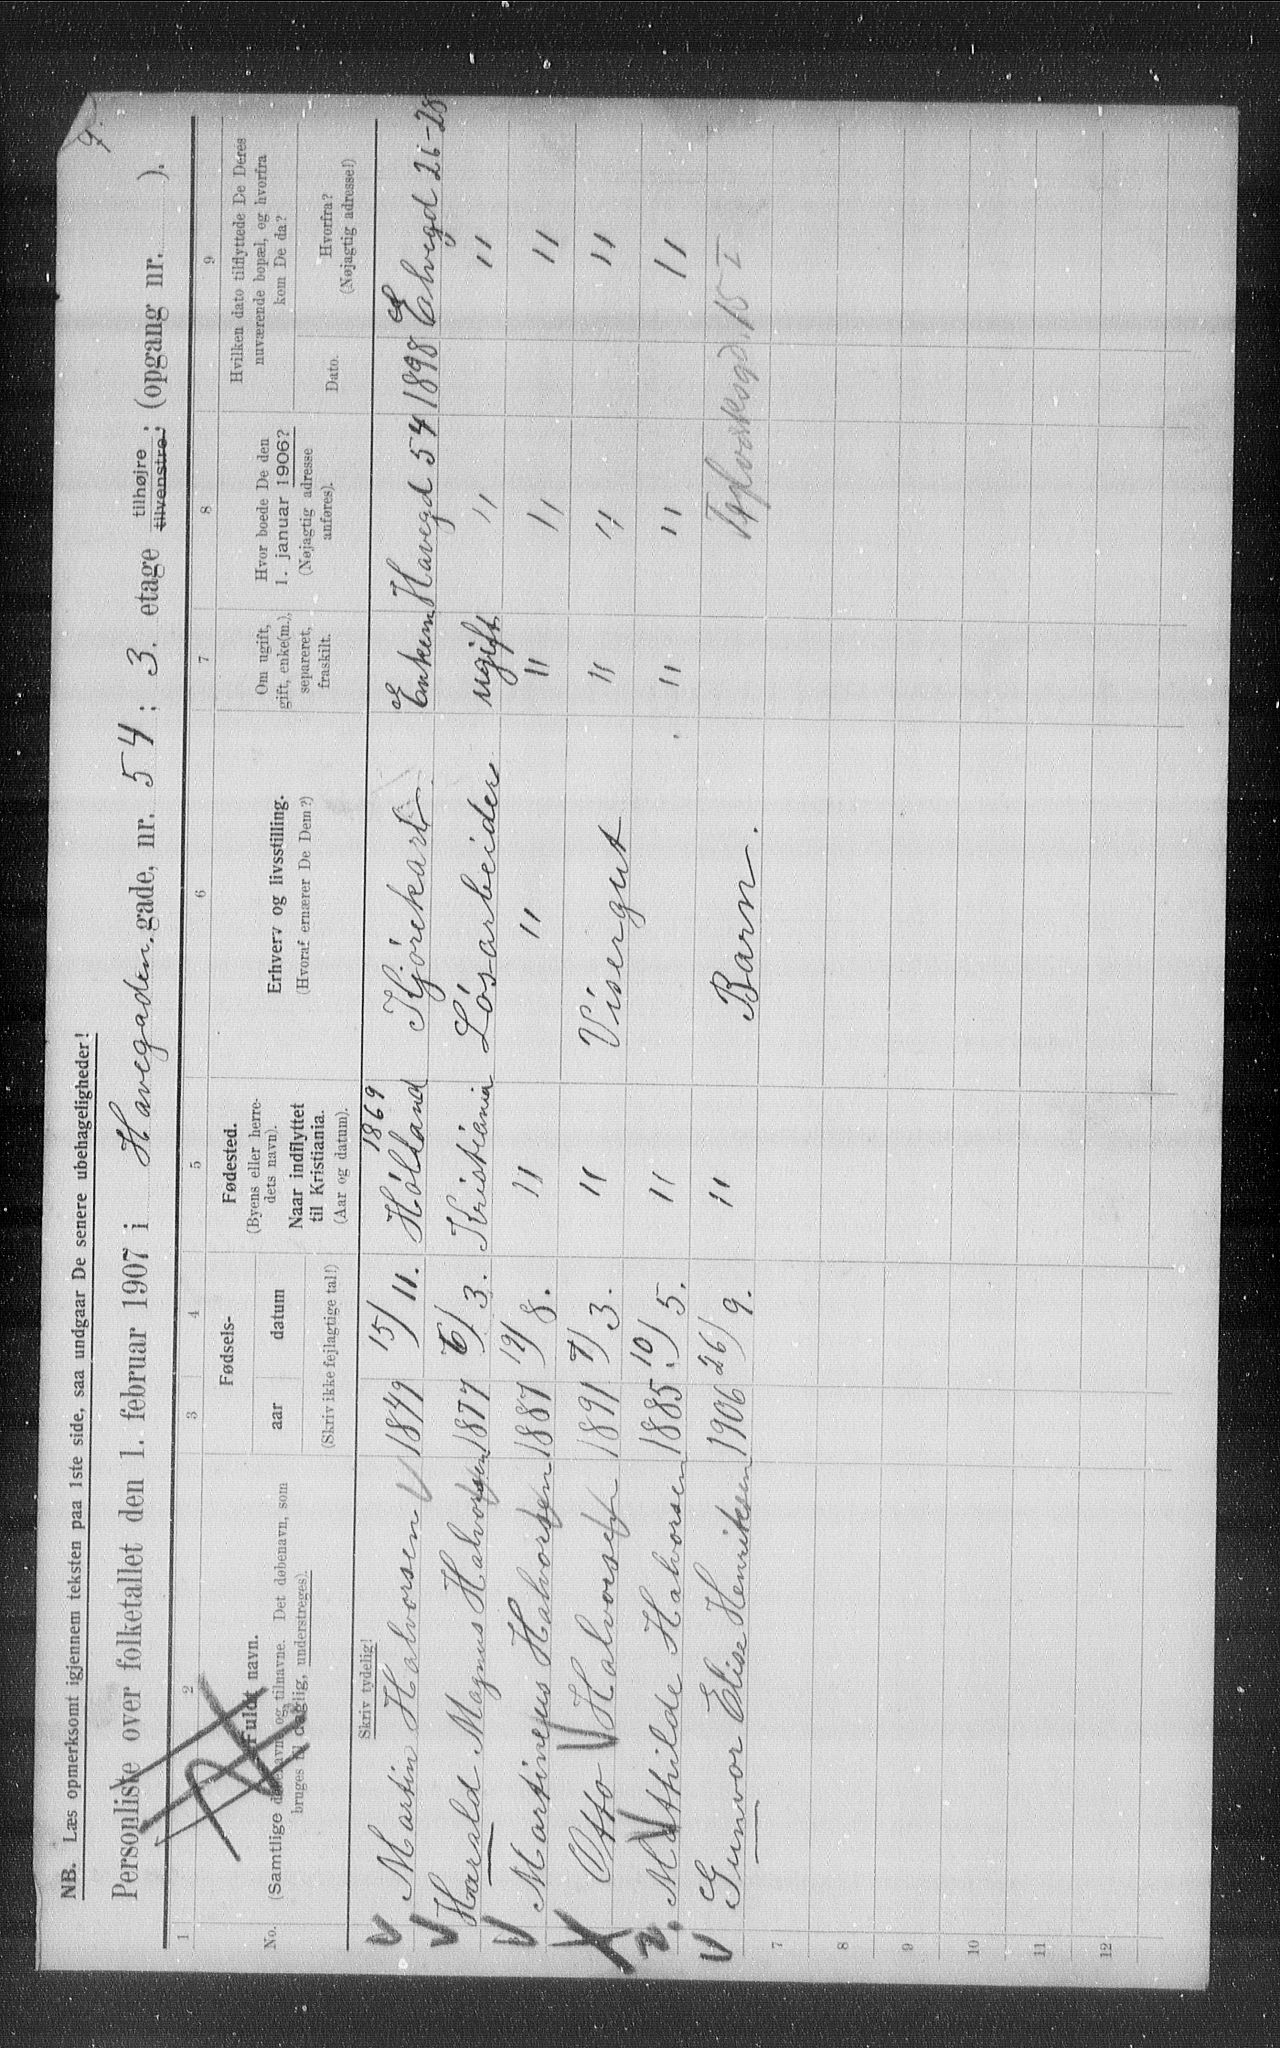 9.
NB. Læs opmerksomt igjennem teksten paa 1ste side, saa undgaar De senere ubehageligheder!
Personliste over folketallet den 1. februar 1907 i Havegaden gade, nr. 54; 3. etage tilhøjre tilvenstre; (opgang nr. ).
1 2 3 4 5 6 7 8 9
No. Fuldt navn. (Samtlige døbenavn og tilnavne. Det døbenavn, som bruges til daglig, understreges).
Fødsels- aar datum (Skriv ikke fejlagtige tal!)
Fødested. (Byens eller herredets navn). Naar indflyttet til Kristiania. (Aar og datum).
Erhverv og livsstilling. (Hvoraf ernærer De Dem?)
Om ugift, gift, enke(m.), separeret, fraskilt.
Hvor boede De den 1. januar 1906? (Nøjagtig adresse anføres).
Hvilken dato tilflyttede De Deres nuværende bopæl, og hvorfra kom De da?
Dato. Hvorfra? (Nøjagtig adresse!)
Skriv tydelig!
Martin Halvorsen 1849 15/11. Høland 1869 Kjørekarl Enkem Havegd 54 1898 Elvegd 26-28
Harald Magnus Halvorsen 1877 6/3. Kristiania Løsarbeider ugift " "
Martineus Halvorsen 1887 19/8. " " " " "
Otto Halvorsen 1891 7/3. " Visergut " " "
Mathilde Halvorsen 1885 10/5. " " " "
Gunvor Elise Henriksen 1906 26/9. " Barn. 15 I
7
8
9
10
11
12